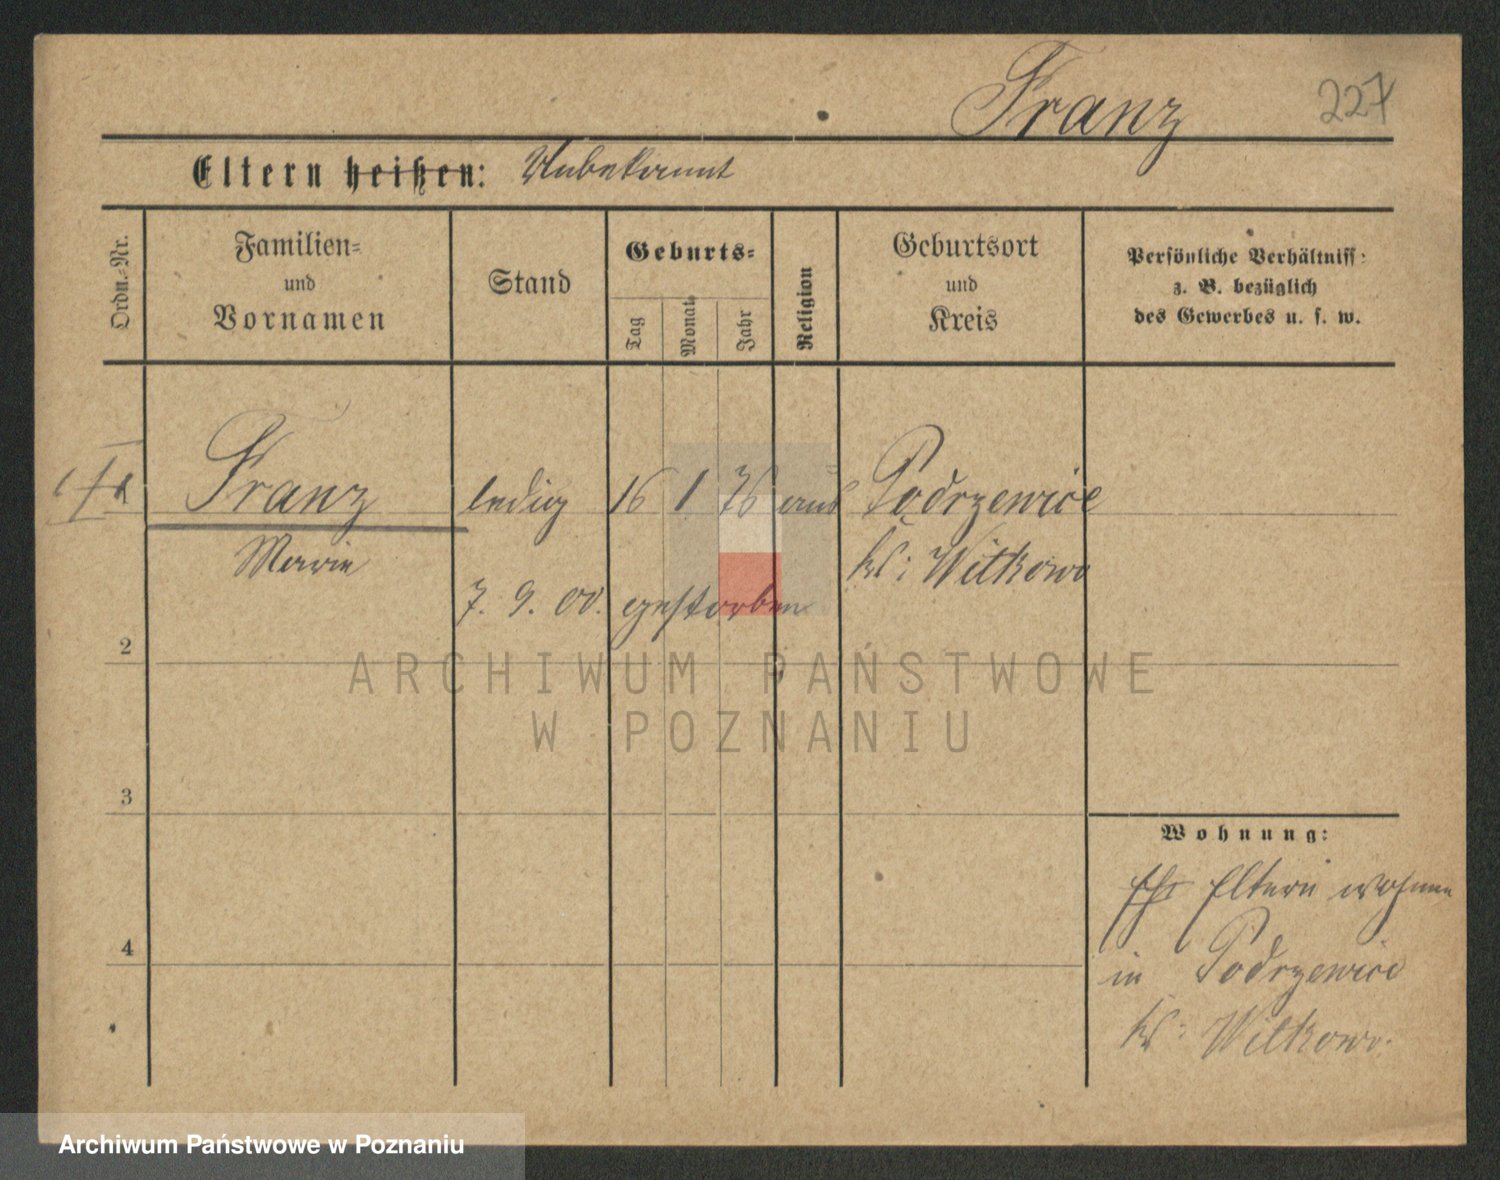 Franz
227
Eltern heißen: Unbekannt
Ordn.-Nr.
Familien-
und
Vornamen
Stand
Geburts-
Tag
Monat
Jahr
Religion
Geburtsort
und
Kreis
Persönliche Verhältniss:
z. B. bezüglich
des Gewerbes u. s. w.
Franz ledig 16 1 76 aus Podrzewice
Marie
Kr: Witkowo
7. 9. 00. gestorben
2
3
4
Wohnung:
Eltern wohnen
in Podrzewice
Kr: Witkowo.
ARCHIWUM PAŃSTWOWE
W POZNANIU
Archiwum Państwowe w Poznaniu